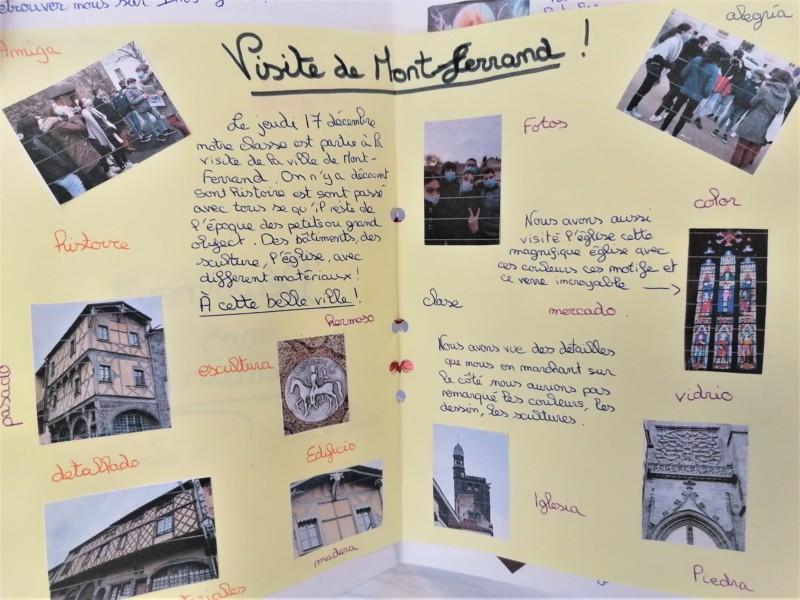 etrouver nous sur
Visite de Mont-Ferrand !
Amiga
Le jeudi 17 décembre
notre classe est partie à la
visite de la ville de Mont-
Ferrand. On n'y a découvert
son histoire est sont passé
avec tous se qu'il reste de
l'époque des petits ou grand
object. Des bâtiments, des
sculture, l'église, avec
different matériaux !
À cette belle ville !
histoire
pasado
hermoso
escultura
detallado
Edificio
madera
teriales
alegría
Fotos
color
Nous avons aussi
visité l'église cette
magnifique église avec
ces couleurs ces motifs et
ce verre incroyable →
clase
mercado
Nous avons vue des détailles
que nous en marchant sur
le côté nous aurions pas
remarqué les couleurs, les
dessin, les scultures.
vidrio
Iglesia
Piedra